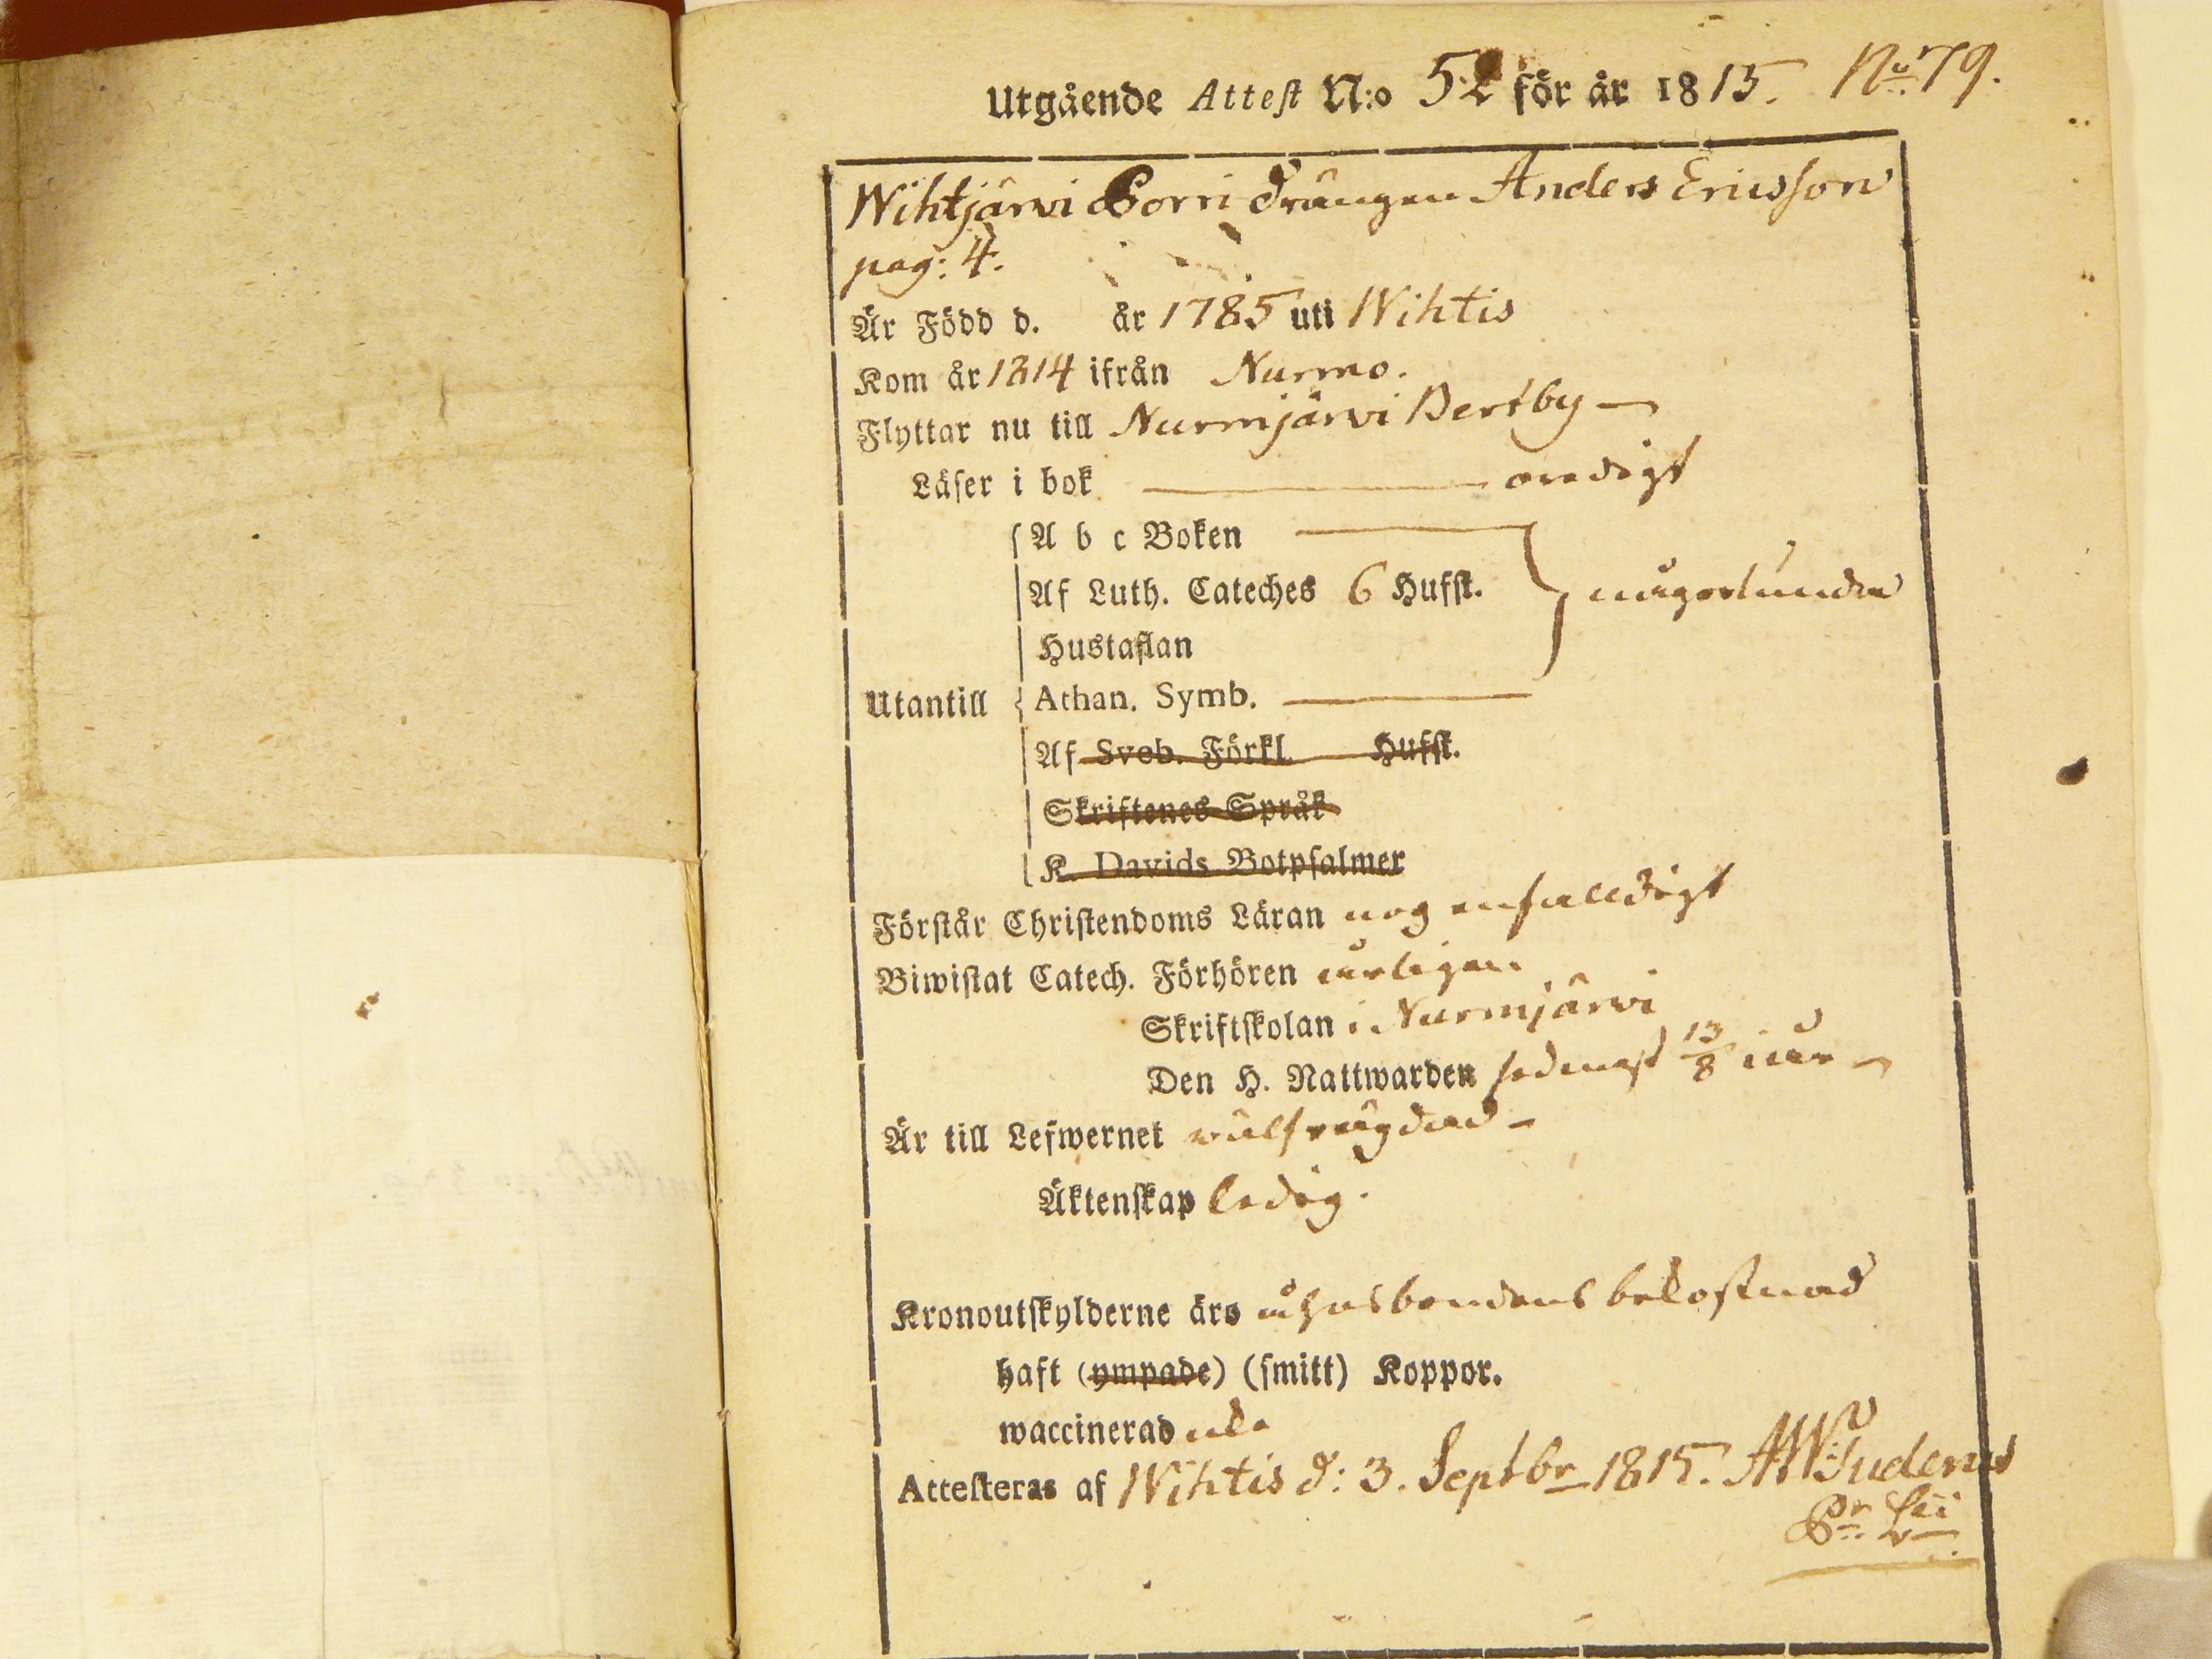 Utgående Attest N:o 52 för år 1815. No 79.
Wihtjärvi Borri Drängen Anders Ericsson
pag: 4.
Är Född d. år 1785 uti Wihtis
Kom år 1814 ifrån Nurmo.
Flyttar nu till Nurmjärvi Bertby
Läser i bok oredigt
A b c Boken
Af Luth. Cateches 6 Hufst. någorlunda
Hustaflan
Utantill Athan. Symb.
Af Sveb. Förkl. Hufst.
Skriftenes Språk
K. Davids Botpsalmer
Förstår Christendoms Läran nog enfalldigt
Biwistat Catech. Förhören årligen
Skriftskolan i Nurmjärvi
Den H. Nattwarden sednast 13/8 i år
Är till Lefwernet välfrägdad
Äktenskap ledig.
Kronoutskylderne äro å husbondens bekostnad
haft (ympade) (smitt) Koppor.
waccinerad icke
Attesteras af Wihtis d: 3. Septbr 1815. AWidenius